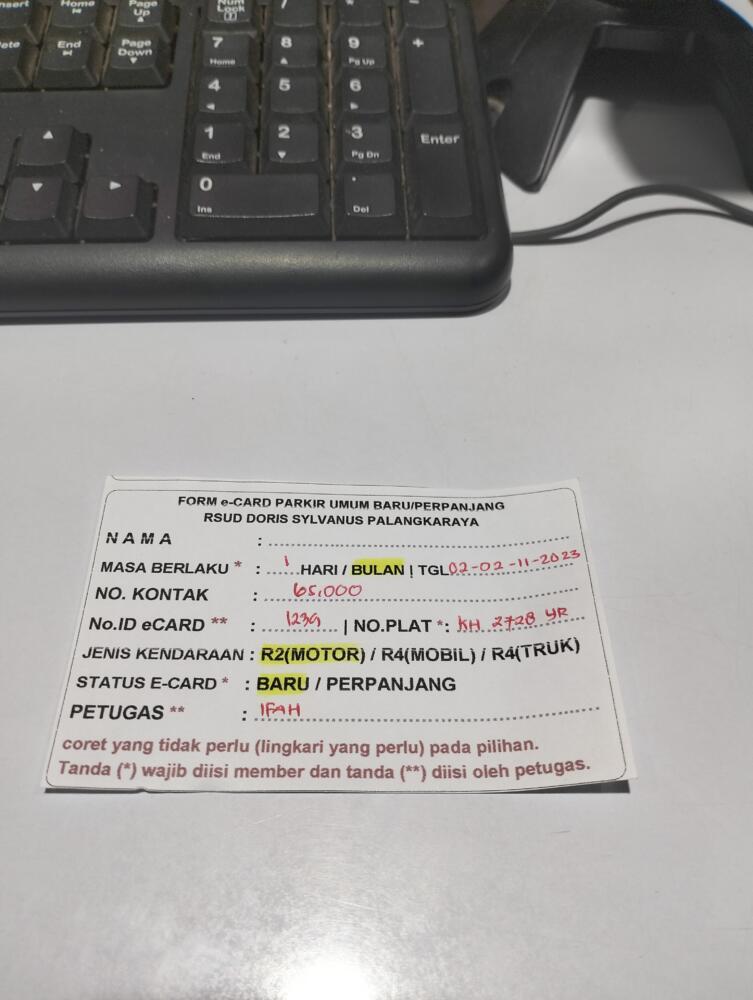 nsert Home Page Up Num Lock / * -
lete End Page Down 7 Home 8 9 Pg Up +
4 5 6
1 End 2 3 Pg Dn Enter
0 Ins . Del
FORM e-CARD PARKIR UMUM BARU/PERPANJANG
RSUD DORIS SYLVANUS PALANGKARAYA
NAMA :
MASA BERLAKU * : 1 HARI / BULAN | TGL 02-02-11-2023
NO. KONTAK : 65.000
No.ID eCARD ** : 1239 | NO.PLAT *: KH 2728 YR
JENIS KENDARAAN : R2(MOTOR) / R4(MOBIL) / R4(TRUK)
STATUS E-CARD * : BARU / PERPANJANG
PETUGAS ** : IFAH
coret yang tidak perlu (lingkari yang perlu) pada pilihan.
Tanda (*) wajib diisi member dan tanda (**) diisi oleh petugas.